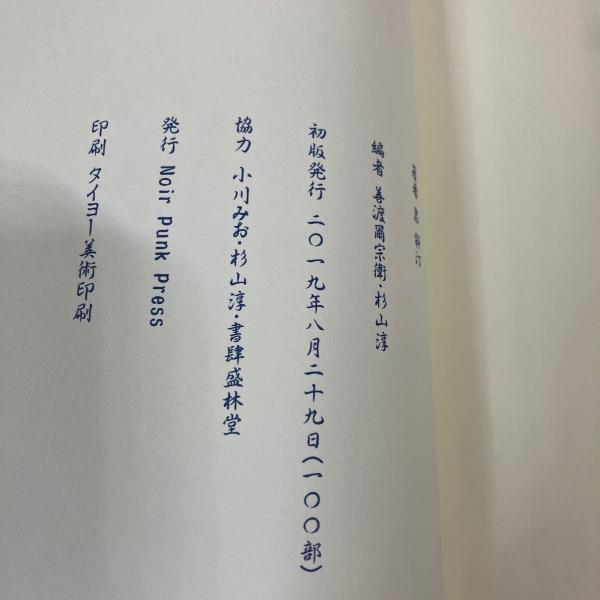 著者
編者 善渡爾宗衛・杉山淳
初版発行 二〇一九年八月二十九日(一〇〇部)
協力 小川みお・杉山淳・書肆盛林堂
発行 Noir Punk Press
印刷 タイヨー美術印刷